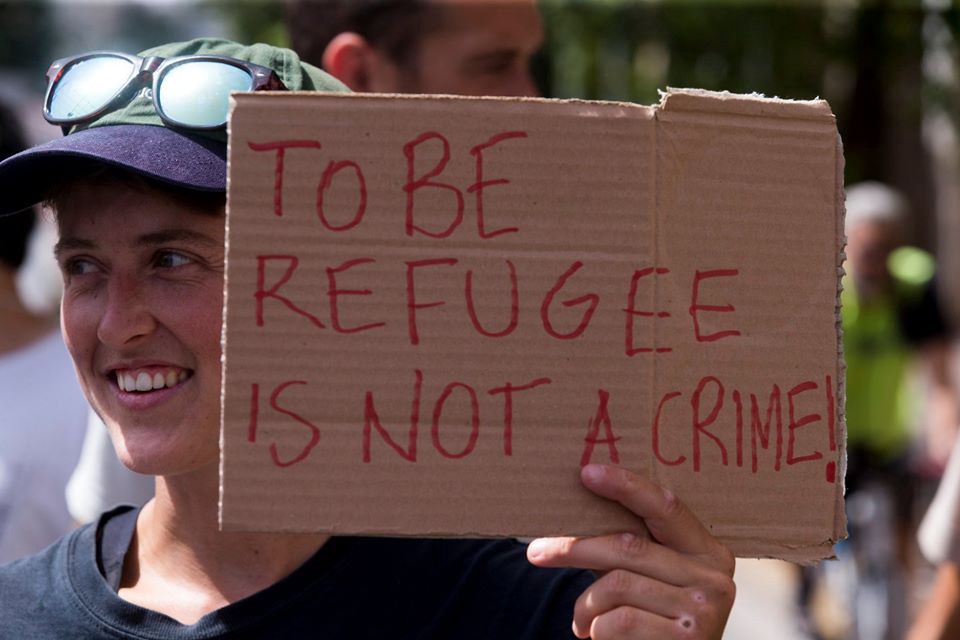 TO BE
REFUGEE
IS NOT A CRIME!